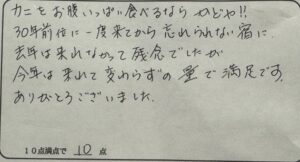 カニをお腹いっぱい食べるなら かどや!!
30年前位に一度来てから忘れられない宿に、
去年は来れなかって残念でしたが
今年は来れて変わらずの量で満足です。
ありがとうございました。
10点満点で 10 点